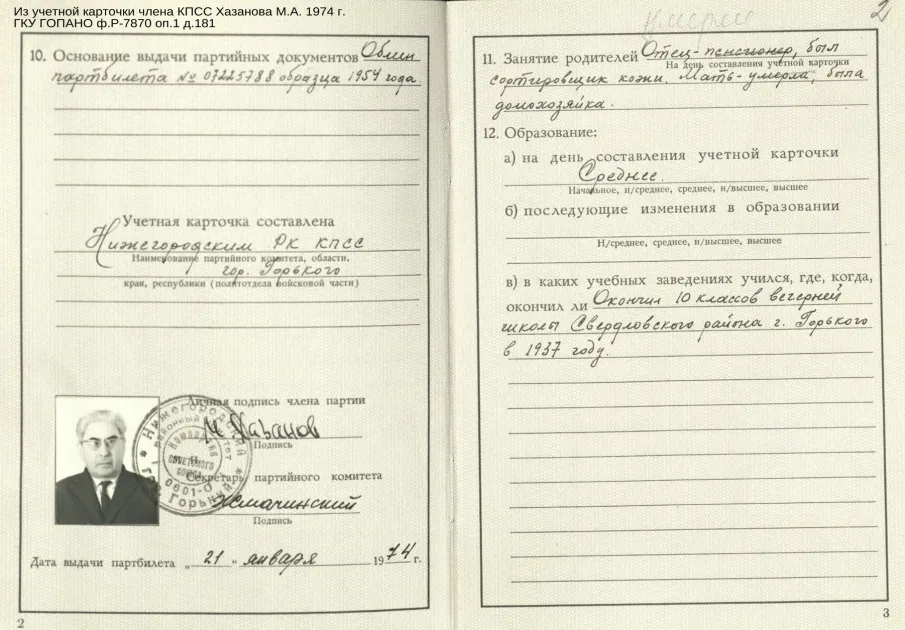 Из учетной карточки члена КПСС Хазанова М.А. 1974 г.
ГКУ ГОПАНО ф.Р-7870 оп.1 д.181
2
10. Основание выдачи партийных документов Обмен
партбилета № 07225788 образца 1954 года
Учетная карточка составлена
Нижегородским РК КПСС
Наименование партийного комитета, области,
гор. Горького
края, республики (политотдела войсковой части)
Личная подпись члена партии
М Хазанов
Подпись
Секретарь партийного комитета
Подпись
Нижегородский
районный
Коммун
Советского
Союза
0601-0
Горький
Дата выдачи партбилета „ 21 “ января 1974 г.
2
11. Занятие родителей Отец-пенсионер, был
На день составления учетной карточки
сортировщик кожи. Мать-умерла, была
домохозяйка.
12. Образование:
а) на день составления учетной карточки
Среднее.
Начальное, н/среднее, среднее, н/высшее, высшее
б) последующие изменения в образовании
Н/среднее, среднее, н/высшее, высшее
в) в каких учебных заведениях учился, где, когда,
окончил ли Окончил 10 классов вечерней
школы Свердловского района г. Горького
в 1937 году.
3